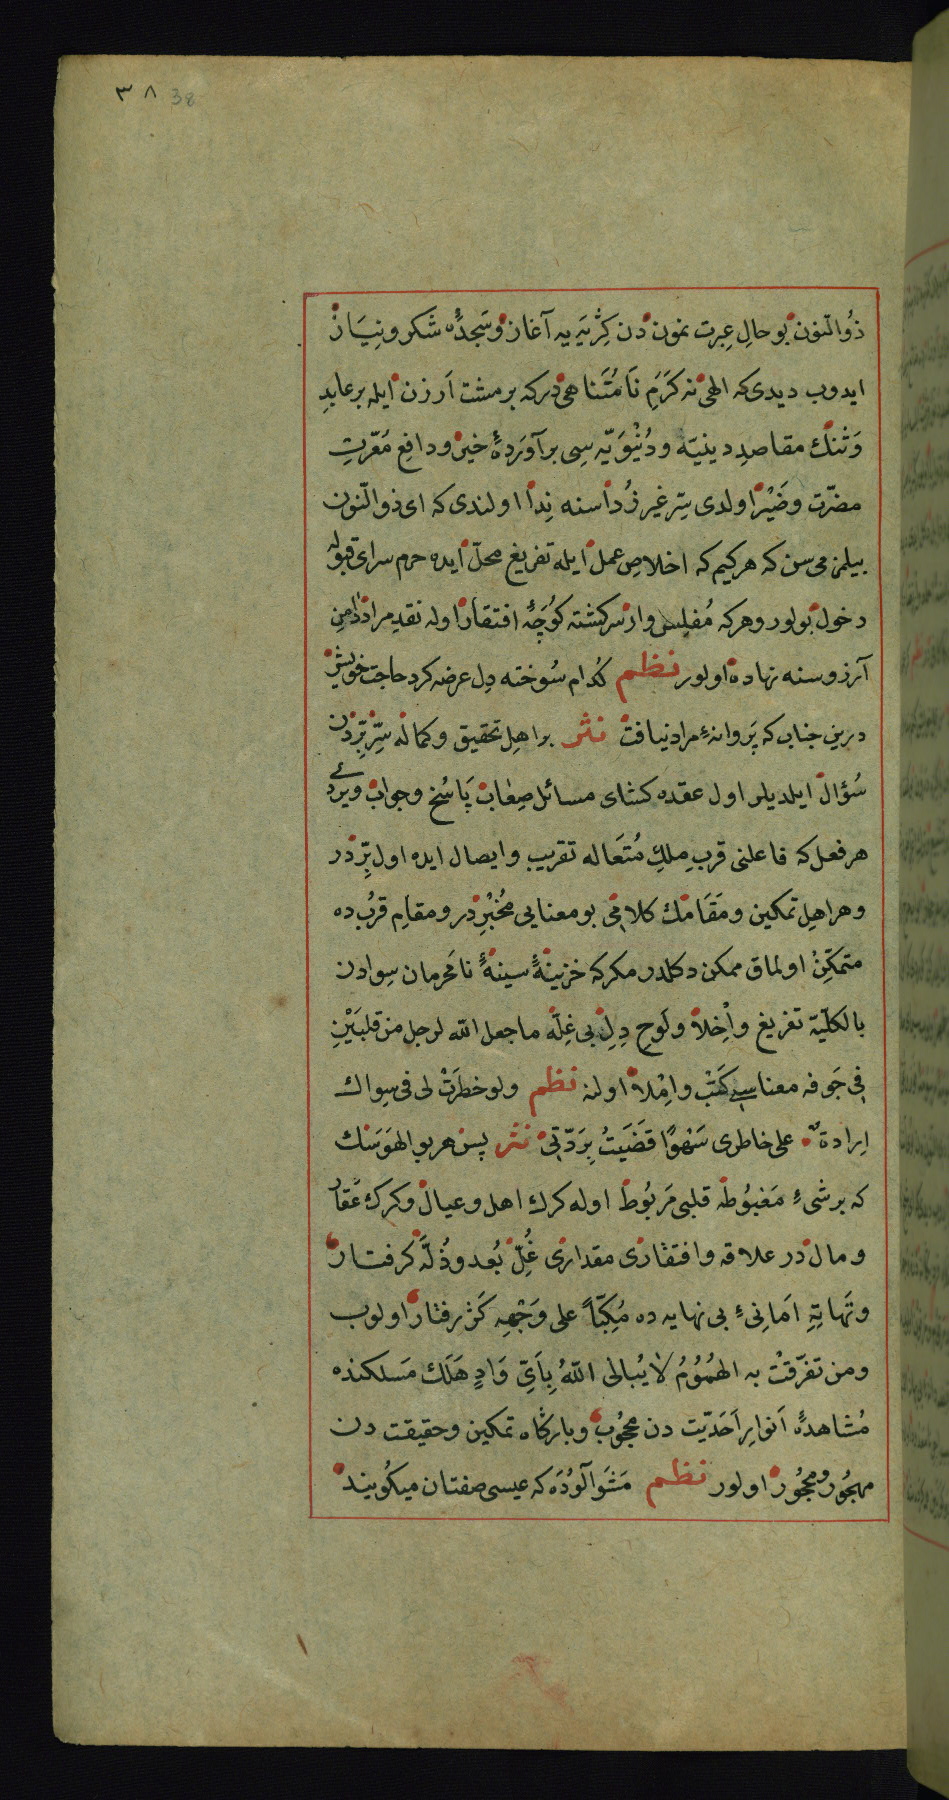 ٣٨ 38
ذُوالنّون بو حالِ عِبرت نمون دن كِرْيَه يه آغاز وسَجدۀ شكر ونِيَاز
ايدوب ديدى كه الهى نه كَرَمِ نَامُتَناهى در كه بر مشت اَرزن ايله بر عابدِ
وَثنك مقاصدِ دينيّه ودُنْيَوَيّه سى برآوَردۀ خير ودافعِ مَعَرّتِ
مضرّت وضَيْر اولدى سِرّ غيرزُداسنه نِدا اولندى كه اى ذوالنّون
بيلمزمى سن كه هر كيم كه اخلاصِ عمل ايله تفريغِ محلّ ايده حرم سراى قبوله
دخول بولور وهر كه مُفلِس وار سركشته كُوچۀ افتقار اوله نقدِ مراد دامنِ
آرزوسنه نهاده اولور نظم كدام سُوخته دِل عرضه كرد حاجت خويش
درين جناب كه پَروانۀ مراد نيافت نثر بر اهلِ تحقيق وكماله سِرّ بِرّدن
سُؤال ايلديلر اول عقده كشاى مسائل صِعٰاب پَاسُخ وجواب ويردى
هر فعل كه فاعلنى قربِ ملكِ مُتَعَاله تقريب وايصال ايده اول بِرّدر
وهر اهلِ تمكين ومَقَامك كلامى بو معنايى مُخْبِردر ومقامِ قرُب ده
متمكّن اولماق ممكن دكلدر مكر كه خزينۀ سينۀ نامَحرمان سِوادن
بالكلّيّه تفريغ واِخْلا ولَوحِ دِلِ بى غِلّه ما جعل الله لرجل من قلبَيْنِ
فى جَوفه معناسى كَتْب واِمْلا اولنه نظم ولو خطَرَتْ لى فى سِواك
اِرادة على خاطرى سَهْوًا قَضَيتُ بِرَدّتى نثر پس هر بو الهَوَسنك
كه بر شىءِ مَغبُوطه قلبى مَربُوط اوله كرك اهل وعيال وكرك عَقار
ومال در علاقه وافتقارى مقدارى غُلِّ بُعد وذُلّه كرفتار
وتَهاتهِ اَمَانىءِ بى نهايه ده مُكِبّاً على وَجْهِه كَژ رفتار اولوب
ومن تفرّقتْ به الهُمُوُمُ لا يُبالى اللّٰهُ بِاَىِّ وَادٍ هَلَك مَسلكنده
مُشاهدۀ اَنوارِ اَحَديّت دن محجُوب وباركاه تمكين وحقيقت دن
مهجُور ومحجُور اولور نظم مَشَو آلوُدَه كه عيسى صفتان ميكُويند